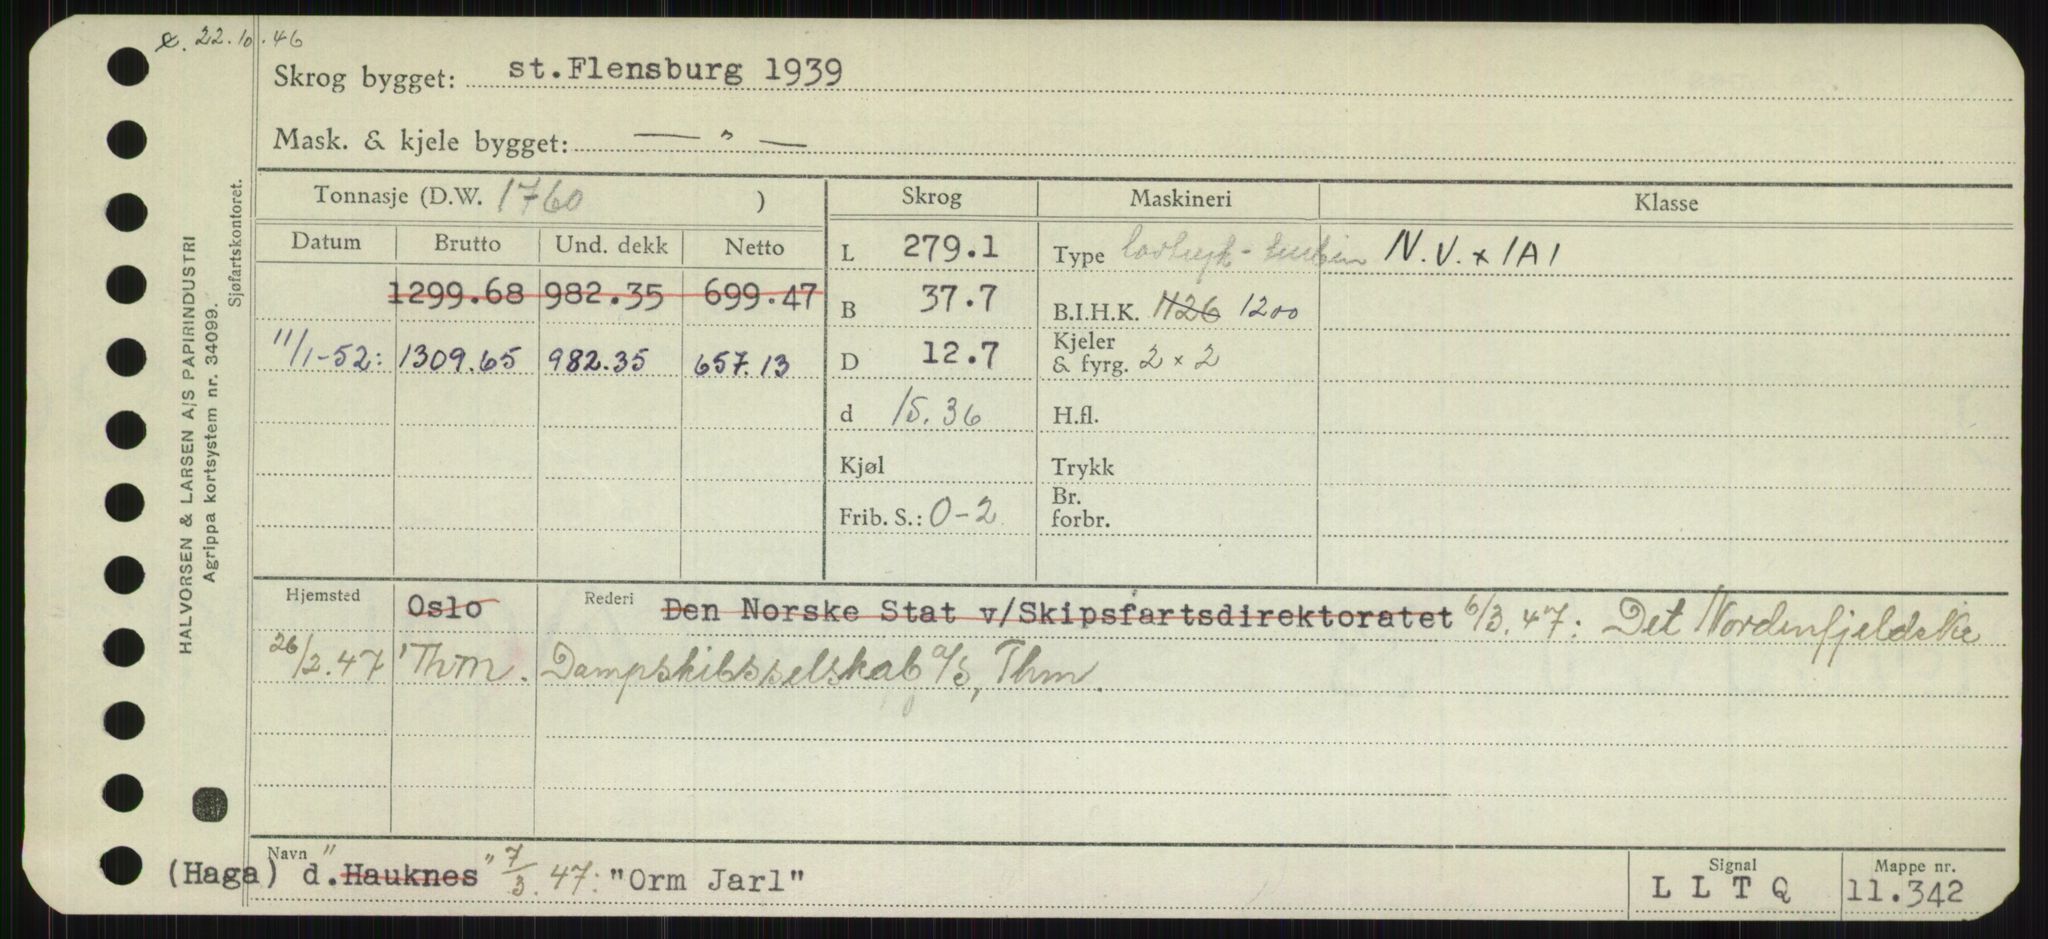 22.10.46
Skrog bygget: st.Flensburg 1939
Mask. & kjele bygget: — " —
Tonnasje (D.W. 1760 )
Skrog
Maskineri
Klasse
Datum Brutto Und. dekk Netto
L 279.1
Type lavtrykk-turbin
N.V. x 1A1
1299.68 982.35 699.47
B 37.7
B.I.H.K. 1126 1200
11/1-52: 1309.65 982.35 657.13
D 12.7
Kjeler
& fyrg. 2 x 2
d 15.36
H.fl.
Kjøl
Trykk
Frib. S.: 0-2
Br.
forbr.
Hjemsted Oslo Rederi Den Norske Stat v/Skipsfartsdirektoratet 6/3.47: Det Nordenfjeldske
26/2.47 Thm. Dampskibsselskab A/S, Thm.
Navn
(Haga) d. "Hauknes" 7/3.47: "Orm Jarl"
Signal
L L T Q
Mappe nr.
11.342
HALVORSEN & LARSEN A/S PAPIRINDUSTRI
Agrippa kortsystem nr. 34099.
Sjøfartskontoret.